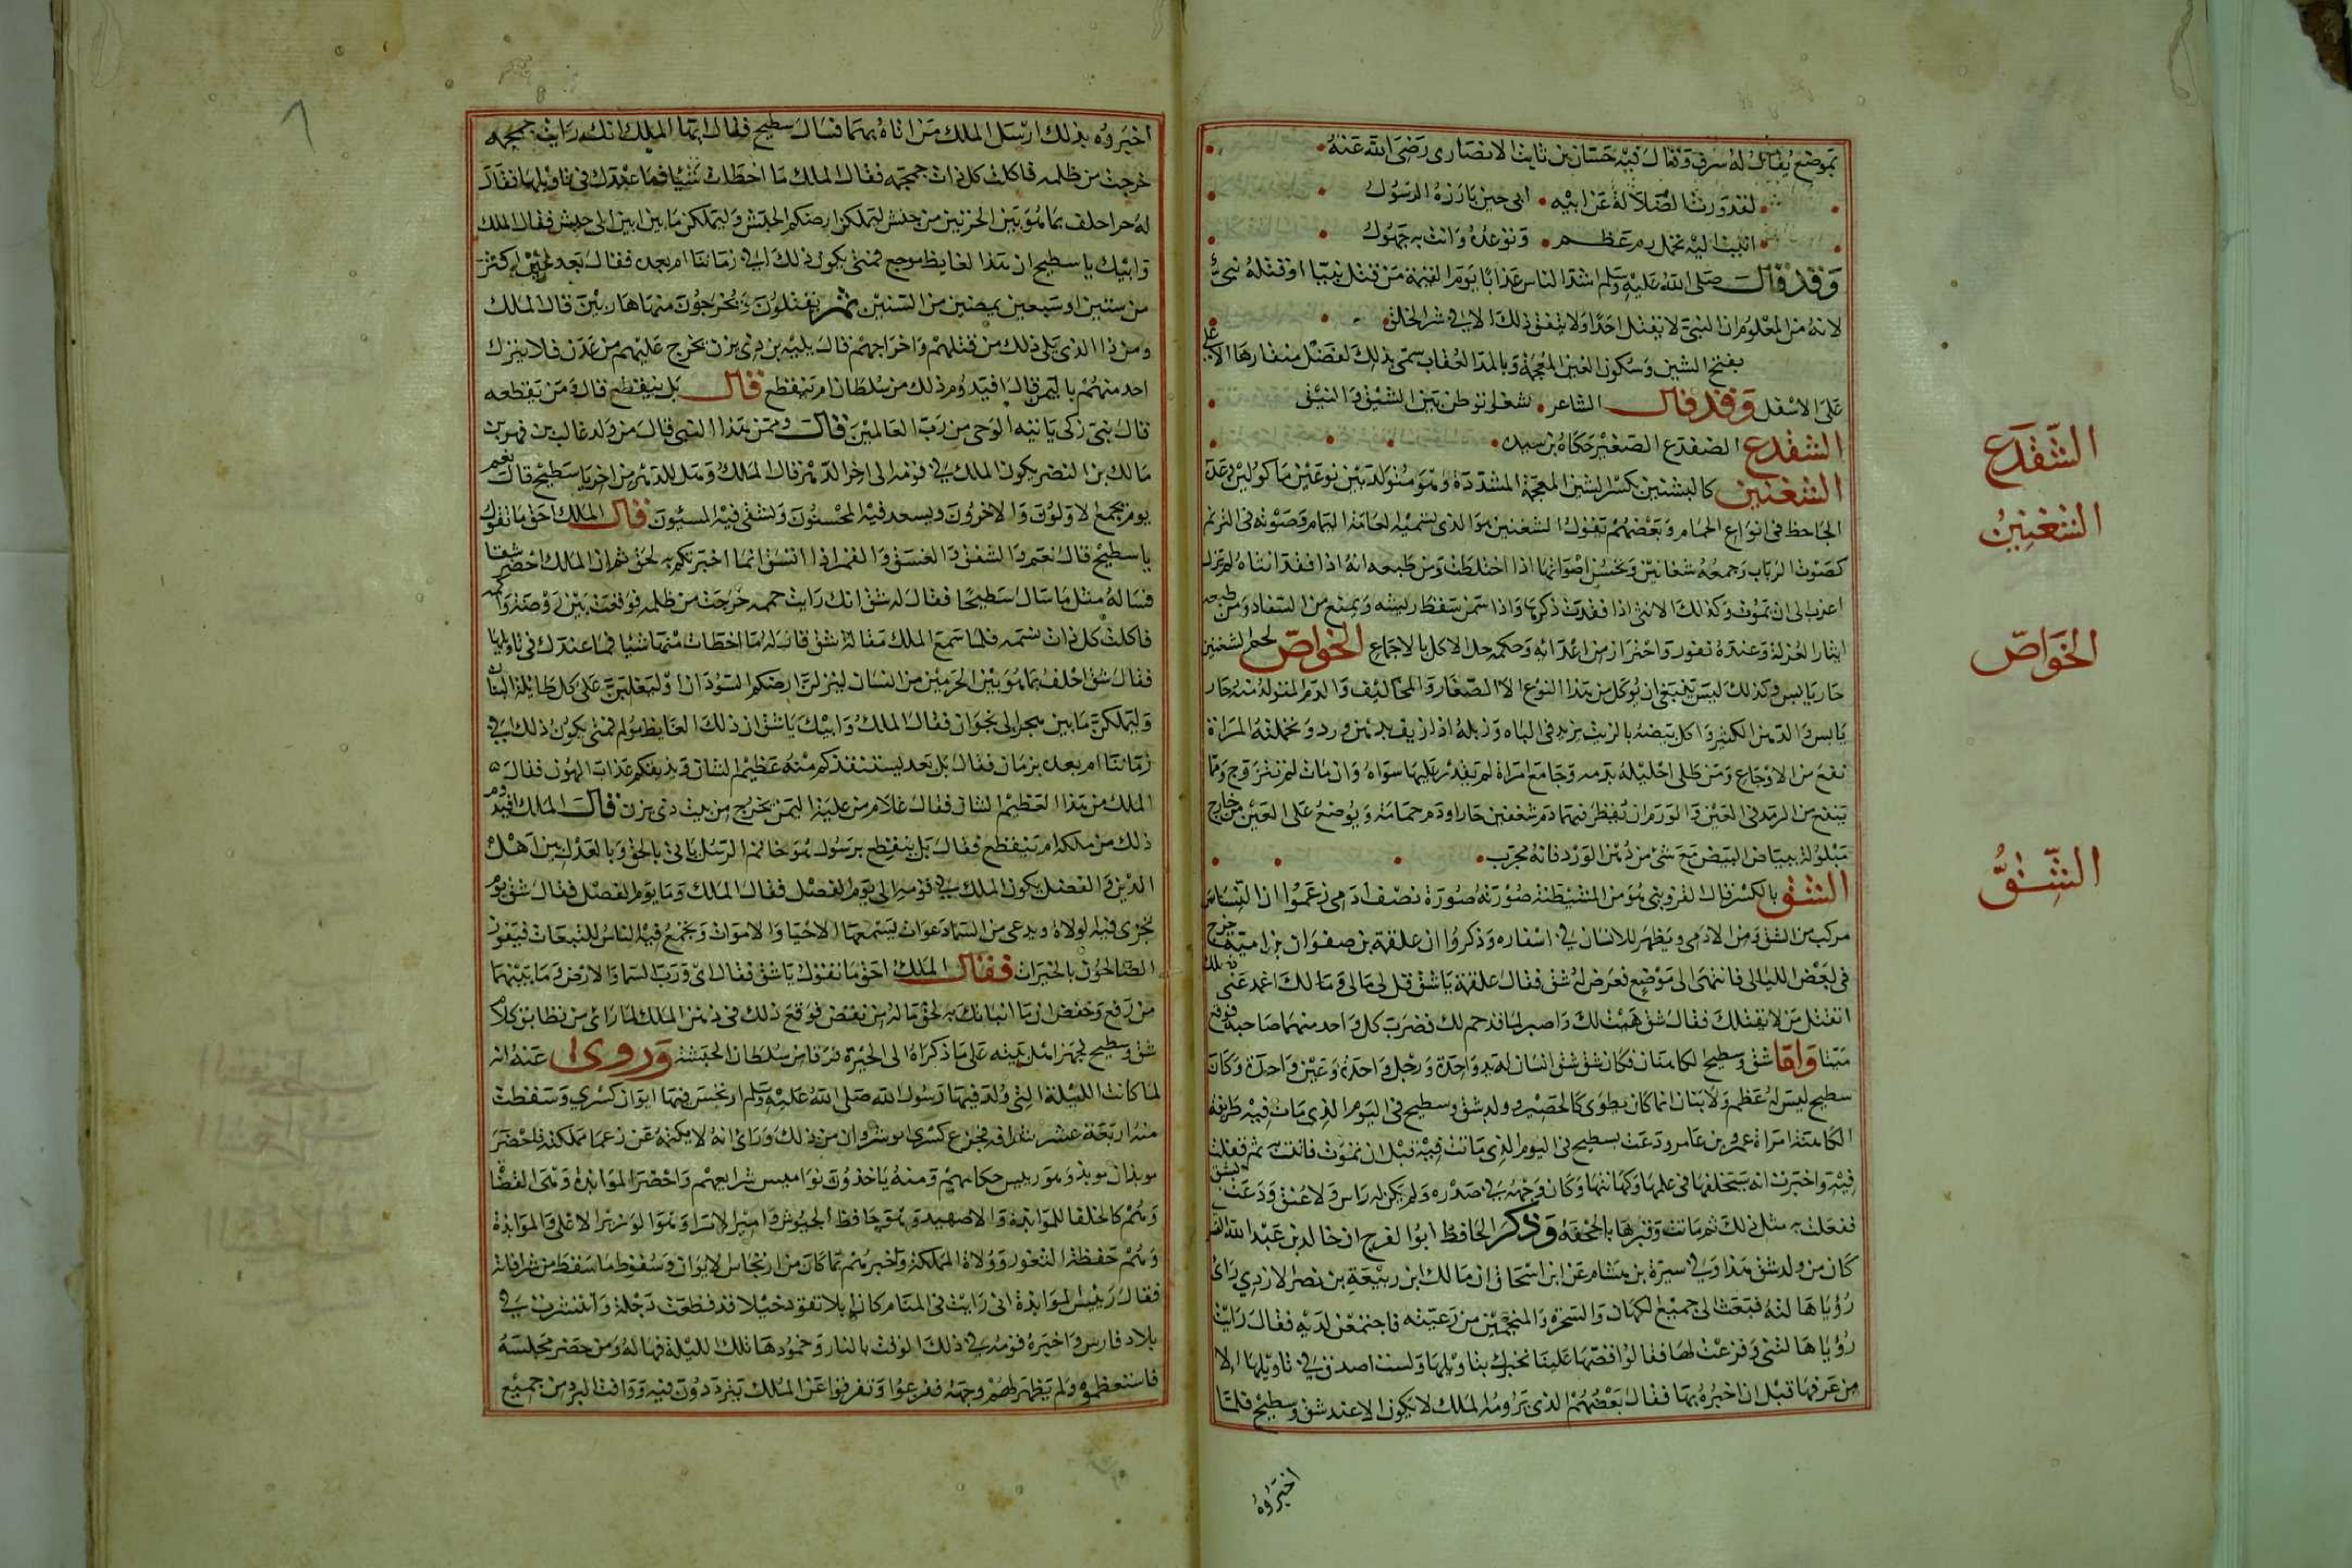 بموضع يقال له سرف وقال فيه حسان بن ثابت الانصاري رضي الله عنه
لقد ورث الضلالة عن ابيه ابي حين بارزه الرسول
اتيت اليه تحمل رم عظم وتوعده وانت به جهول
وقد قال صلى الله عليه وسلم اشد الناس عذابا يوم القيمة من قتل نبيا او قتله نبي
لانه من المعلوم ان النبي لا يقتل احدا ولا يتفق ذلك الا في شر الخلق
بفتح الشين وسكون الغين المعجمة وبالمد العقاب سمي بذلك لفضل منقارها الاعلى
على الاسفل وقد قال الشاعر شغلو توطن بين الشيق والنيق
الشفدع الضفدع الصغير حكاه بن سيده
الشغنين كالبشنين بكسر الشين المعجمة المشددة وهو متولد بين نوعين ماكولين وعده
الجاحظ في انواع الحمام وبعضهم يقول الشغنين هو الذي تسميه العامة اليمام وصوته في الترنم
كصوت الرباب وجمعه شغانين وتحسن اصواتها اذا اختلطت ومن طبعه انه اذا فقد انثاه لم يزل
اعزب الى ان يموت وكذلك الانثى اذا فقدت ذكرها واذا سمن سقط ريشه ويمنع من السفاد ومن طبعه
ايثار العزلة وعنده نفور واحتراز من اعدائه وحكمه حل الاكل بالاجماع الخواص لحم الشغنين
حار يابس وكذلك ليس ينبغي ان يوكل من هذا النوع الا الصغار والمخاليف والدم المتولد منه حار
يابس والدهن الكثير واكل بيضه بالزيت يزيد في الباه وزبله اذا زيف بدهن ورد وتحملته المراة
نفع من الاوجاع ومن طلى احليله بدمه وجامع امراة لم يقدر عليها سواه وان مات لم تتزوج ومما
ينفع من الرمد في العين والورم ان يقطر فيهما دم شغنين حارا ودم حمامة ويوضع على العين من خارج
مبلولة ببياض البيض مع شيء من دهن الورد فانه مجرب
الشق بالكسر قال القزويني هو من المتشيطنة صورته صورة نصف ادمي زعموا ان النسناس
مركب من الشق ومن الادمي ويظهر للانسان في اسفاره وذكروا ان علقمة بن صفوان بن امية خرج
في بعض الليالي فانتهى الى موضع فعرض له شق فقال علقمة يا شق قل لي مالي ومالك اغمد عني منصلك
اتقتل من لا يقتلك فقال شق هيت لك واصبر لما قد حم لك فضرب كل واحد منهما صاحبه فوقع
ميتا واما شق وسطيح الكاهنان فكان شق شق انسان له يد واحدة ورجل واحدة وعين واحدة وكان
سطيح ليس له عظم ولا بنان انما كان يطوى كالحصير وولد شق وسطيح في اليوم الذي مات فيه طريفة
الكاهنة امراة عمرو بن عامر ودعت بسطيح في اليوم الذي ماتت فيه قبل ان تموت فاتت به ثم تفلت
في فيه واخبرت انه سيخلفها في علمها وكهانتها وكان وجهه في صدره ولم يكن له راس ولا عنق ودعت بشق
ففعلت به مثل ذلك ثم ماتت وقبرها بالجحفة وذكر الحافظ ابو الفرج ان خالد بن عبد الله القسري
كان من ولد شق هذا وفي سيرة بن هشام عن ابن اسحاق ان مالك ابن ربيعة بن نصر الازدي راى
رؤيا هالته فبعث الى جميع الكهان والسحرة والمنجمين من رعيته فاجتمعن لديه فقال رايت
رؤيا هالتني وفزعت لها فقالوا اقصها علينا نخبرك بتاويلها ولست اصدق في تاويلها الا
من عرفها قبل ان اخبره بها فقال بعضهم الذي يرومه الملك لا يكون الا عند شق وسطيح فلما
اخبروه
الشفدع
الشغنين
الخواص
الشق
اخبروه بذلك ارسل الملك من اتاه بهما فسال سطيح فقال ايها الملك انك رايت جمجمه
خرجت من ظلمه فاكلت كل ذات جمجمه فقال الملك ما اخطات شيا فما عندك في تاويلها فقال
له احلف بما بين الحرتين من حنش ليملكن ارضكم الحبش وليملكن ما بين ابين الى جرش فقال الملك
وابيك يا سطيح ان هذا لغايظ موجع فمتى يكون ذلك افي زماننا ام بعده فقال بعده بحين اكثر
من ستين او سبعين يمضين من السنين ثم يقتلون ويخرجون منها هاربين قال الملك
ومن ذا الذي يلي ذلك من قتلهم واخراجهم قال يليه بن ذي يزن يخرج عليهم من عدن فلا يترك
احد منهم باليمن قال افيدوم ذلك من سلطانه ام ينقطع قال بل ينقطع قال ومن يقطعه
قال نبي زكي ياتيه الوحي من رب العالمين قال وممن هذا النبي قال من ولد غالب بن فهر بن
مالك بن النضر يكون الملك في قومه الى اخر الدهر قال الملك وهل للدهر من اخر يا سطيح قال نعم
يوم يجمع الاولون والاخرون ويسعد فيه المحسنون ويشقى فيه المسيون قال الملك احق ما تقول
يا سطيح قال نعم والشفق والغسق والقمر اذا اتسق انما اخبرتكم به لحق ثم ان الملك احضر شقا
فساله مثل ما سال سطيحا فقال له شق انك رايت حممه خرجت من ظلمه فوقعت بين روضة واكمه
فاكلت كل ذات نسمه فلما سمع الملك مقالة شق قال له ما اخطات منها شيا فما عندك في تاويلها
فقال شق احلف بما بين الحرتين من انسان لينزلن ارضكم السودان وليغلبن على كل طايلة البنان
وليملكن ما بين ابين الى نجران فقال الملك وابيك يا شق ان ذلك لغايظ مولم فمتى يكون ذلك افي
زماننا ام بعده بزمان فقال بل بعد ليستنقذكم منه عظيم الشان ويذيقهم عذاب الهون فقال
الملك من هذا العظيم الشان فقال غلام من علية اليمن يخرج من بيت ذي يزن قال الملك افيدوم
ذلك من ملكه ام ينقطع فقال بل ينقطع برسول هو خاتم الرسل ياتي بالحق وبالعدل بين اهل
الدين والفضل يكون الملك في قومه الى يوم الفصل فقال الملك وما يوم الفصل فقال شق يوم
يجزى فيه الولاة ويدعى من السماء دعوات يسمعها الاحيا والاموات ويجمع فيه الناس للتبعات فيفوز
الصالحون بالخيرات فقال الملك احق ما تقول يا شق فقال اي ورب السما والارض وما بينهما
من رفع وخفض ان ما انباتك به لحق ماله من نقض فوقع ذلك في ذهن الملك لما راى من تطابق كلام
شق وسطيح فجهز اهل بيته على ما ذكراه الى الحيرة فرقا من سلطان الحبشة وروي عنه انه
لما كانت الليلة التي ولد فيها رسول الله صلى الله عليه وسلم ارتجس فيها ايوان كسرى وسقطت
منه اربعة عشر شرافه فجزع كسرى انوشروان من ذلك وراى انه لا يكتمه عن زعما مملكته فاحضر
موبذان موبذ وهو رييس حكامهم ومنه ياخذون نواميس شرايعهم واحضر الموابذة وهي القضا
وهم كالخلفا للموابذة والاصهبد وهو حافظ الجيوش وامير الامرا وهو الوزير الاعلى والموابذة
وهم حفظة الثغور وولاة المملكة واخبرهم بما كان من ارتجاس الايوان وسقوط ما سقط من شرافاته
فقال رييس الموابذة اني رايت في المنام كان ابلا تقود خيلا قد قطعت دجلة وانتشرت في
بلاد فارس واخبره قومه في ذلك الوقت بالنار وخمودها تلك الليلة فهاله ومن حضر مجلسه
فاستعظموه ولم يظهر لهم وجهه ففزعوا وتفرقوا عن الملك يترددون فيه ووافت البرد من جميع